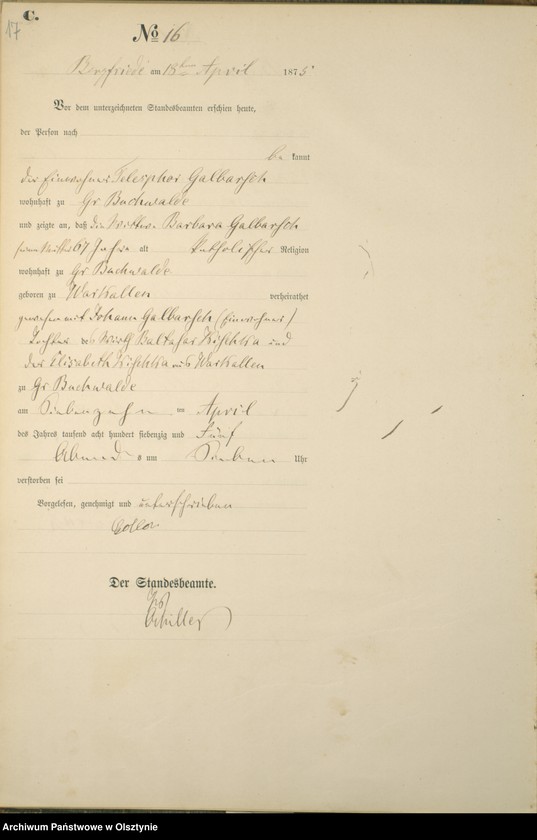 C.
17
No 16
Bergfriede am 18ten April 1875
Vor dem unterzeichneten Standesbeamten erschien heute,
der Person nach
be kannt
der Einwohner Telesphor Galbarsch
wohnhaft zu Gr Buchwalde
und zeigte an, daß die Wittwe Barbara Galbarsch
seine Mutter 67 Jahre alt katholischer Religion
wohnhaft zu Gr Buchwalde
geboren zu Warkallen verheirathet
gewesen mit Johann Galbarsch (Einwohner)
Tochter des Wirth Balthasar und
der Elisabeth aus Warkallen
zu Gr Buchwalde
am Siebenzehn ten April
des Jahres tausend acht hundert siebenzig und Fünf
Abend s um Sieben Uhr
verstorben sei
Vorgelesen, genehmigt und unterschrieben
Der Standesbeamte.